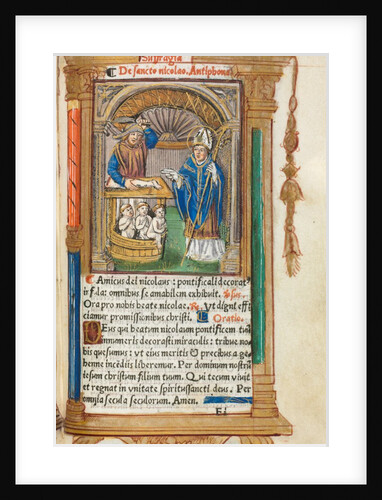 Suffragia
De sancto nicolao. Antiphona
Amicus dei nicolaus: pontificali decorat⁹
īfula: omnibus se amabilem exhibuit.
Ora pro nobis beate nicolae. Ut digni effi
ciamur promissionibus christi. Oratio.
Deus qui beatum nicolaum pontificem tuū
innumeris decorasti miraculis: tribue no⸗
bis quesumus: ut eius meritis et precibus a ge⸗
henne incēdiis liberemur. Per dominum nostrū
iesum christum filium tuum. Qui tecum vivit
et regnat in unitate spiritussancti deus. Per
omnia secula seculorum. Amen.